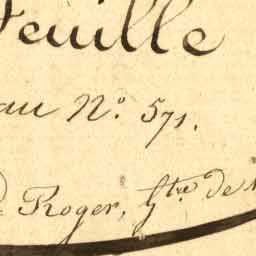 Feuille
au N.º 571.
Roger, G.tre de